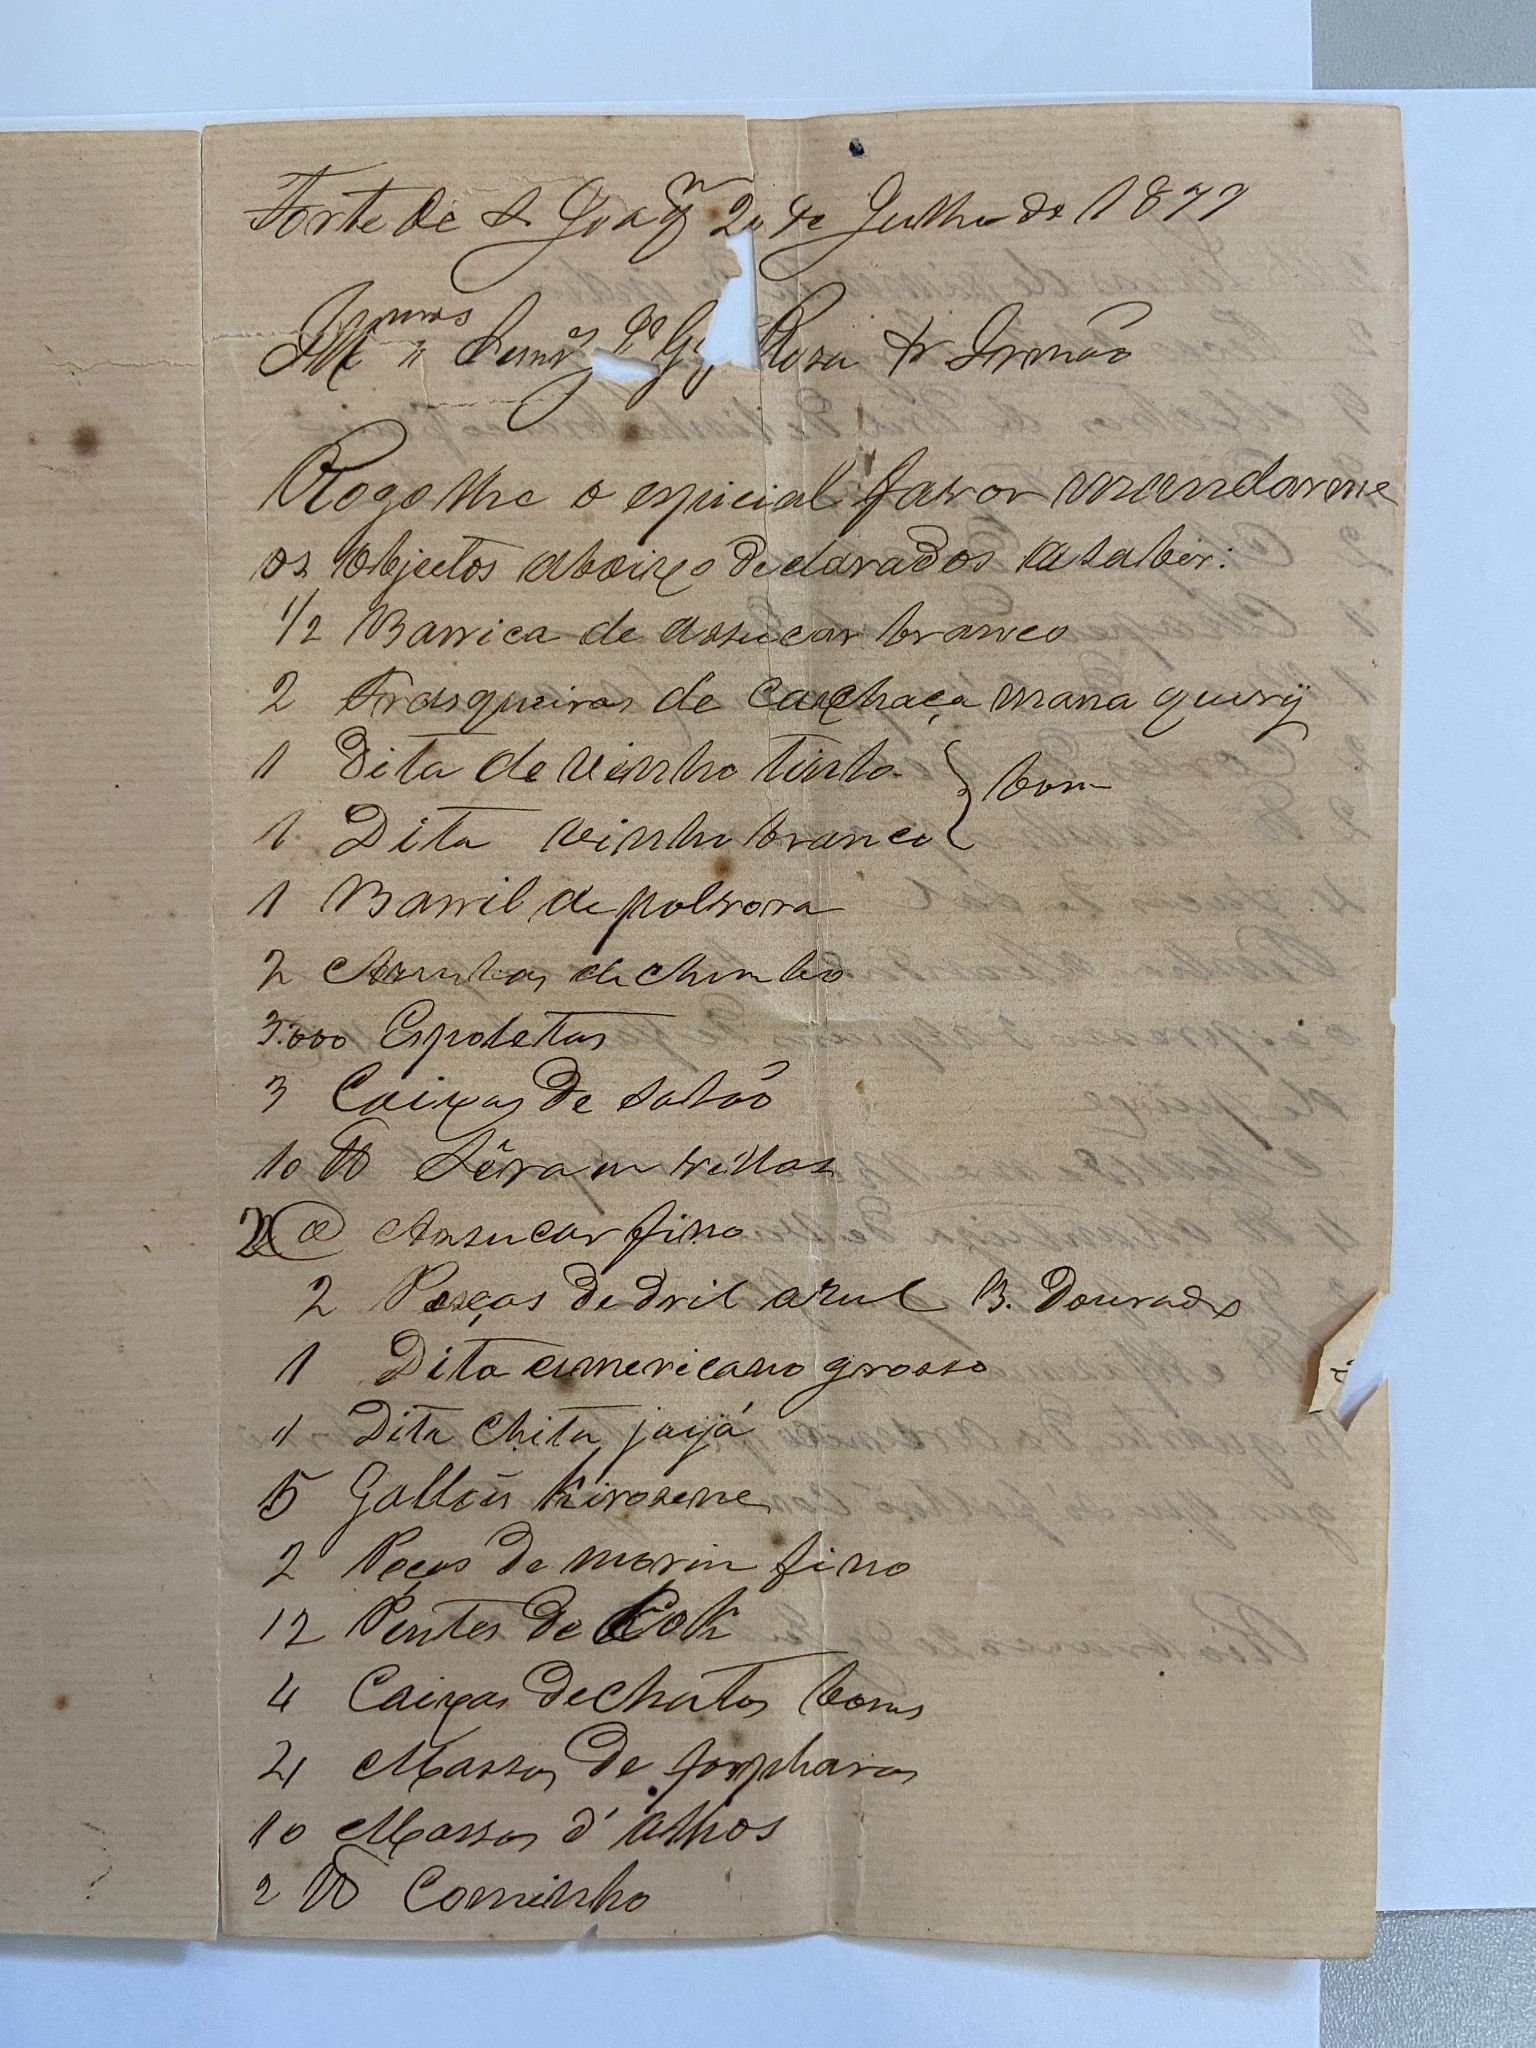 Forte de S. Joaqm 20 de Julho de 1877
Illmos Senres Rosa & Irmão
Rogo lhe o espicial favor mandarme
os objectos abaixo declarados a saber:
1/2 Barrica de assucar branco
2 Frasqueiras de caxhaça mana quiry
1 Dita de vinho tinto } bom
1 Dita vinho branco
1 Barril de polvora
2 Arrubas de chumbo
3:000 Espoletas
3 Caixas de sabão
10 ℔ Sêra em vellas
2 @ Assucar fino
2 Peças de dril azul B. Dourado
1 Dita americano grosso
1 Dita chita
5 Gallois kirosene
2 Peças de morin fino
12 Pentes de Cok
4 Caixas de bons
4 Massos de
10 Massos d'alhos
2 ℔ Cominho